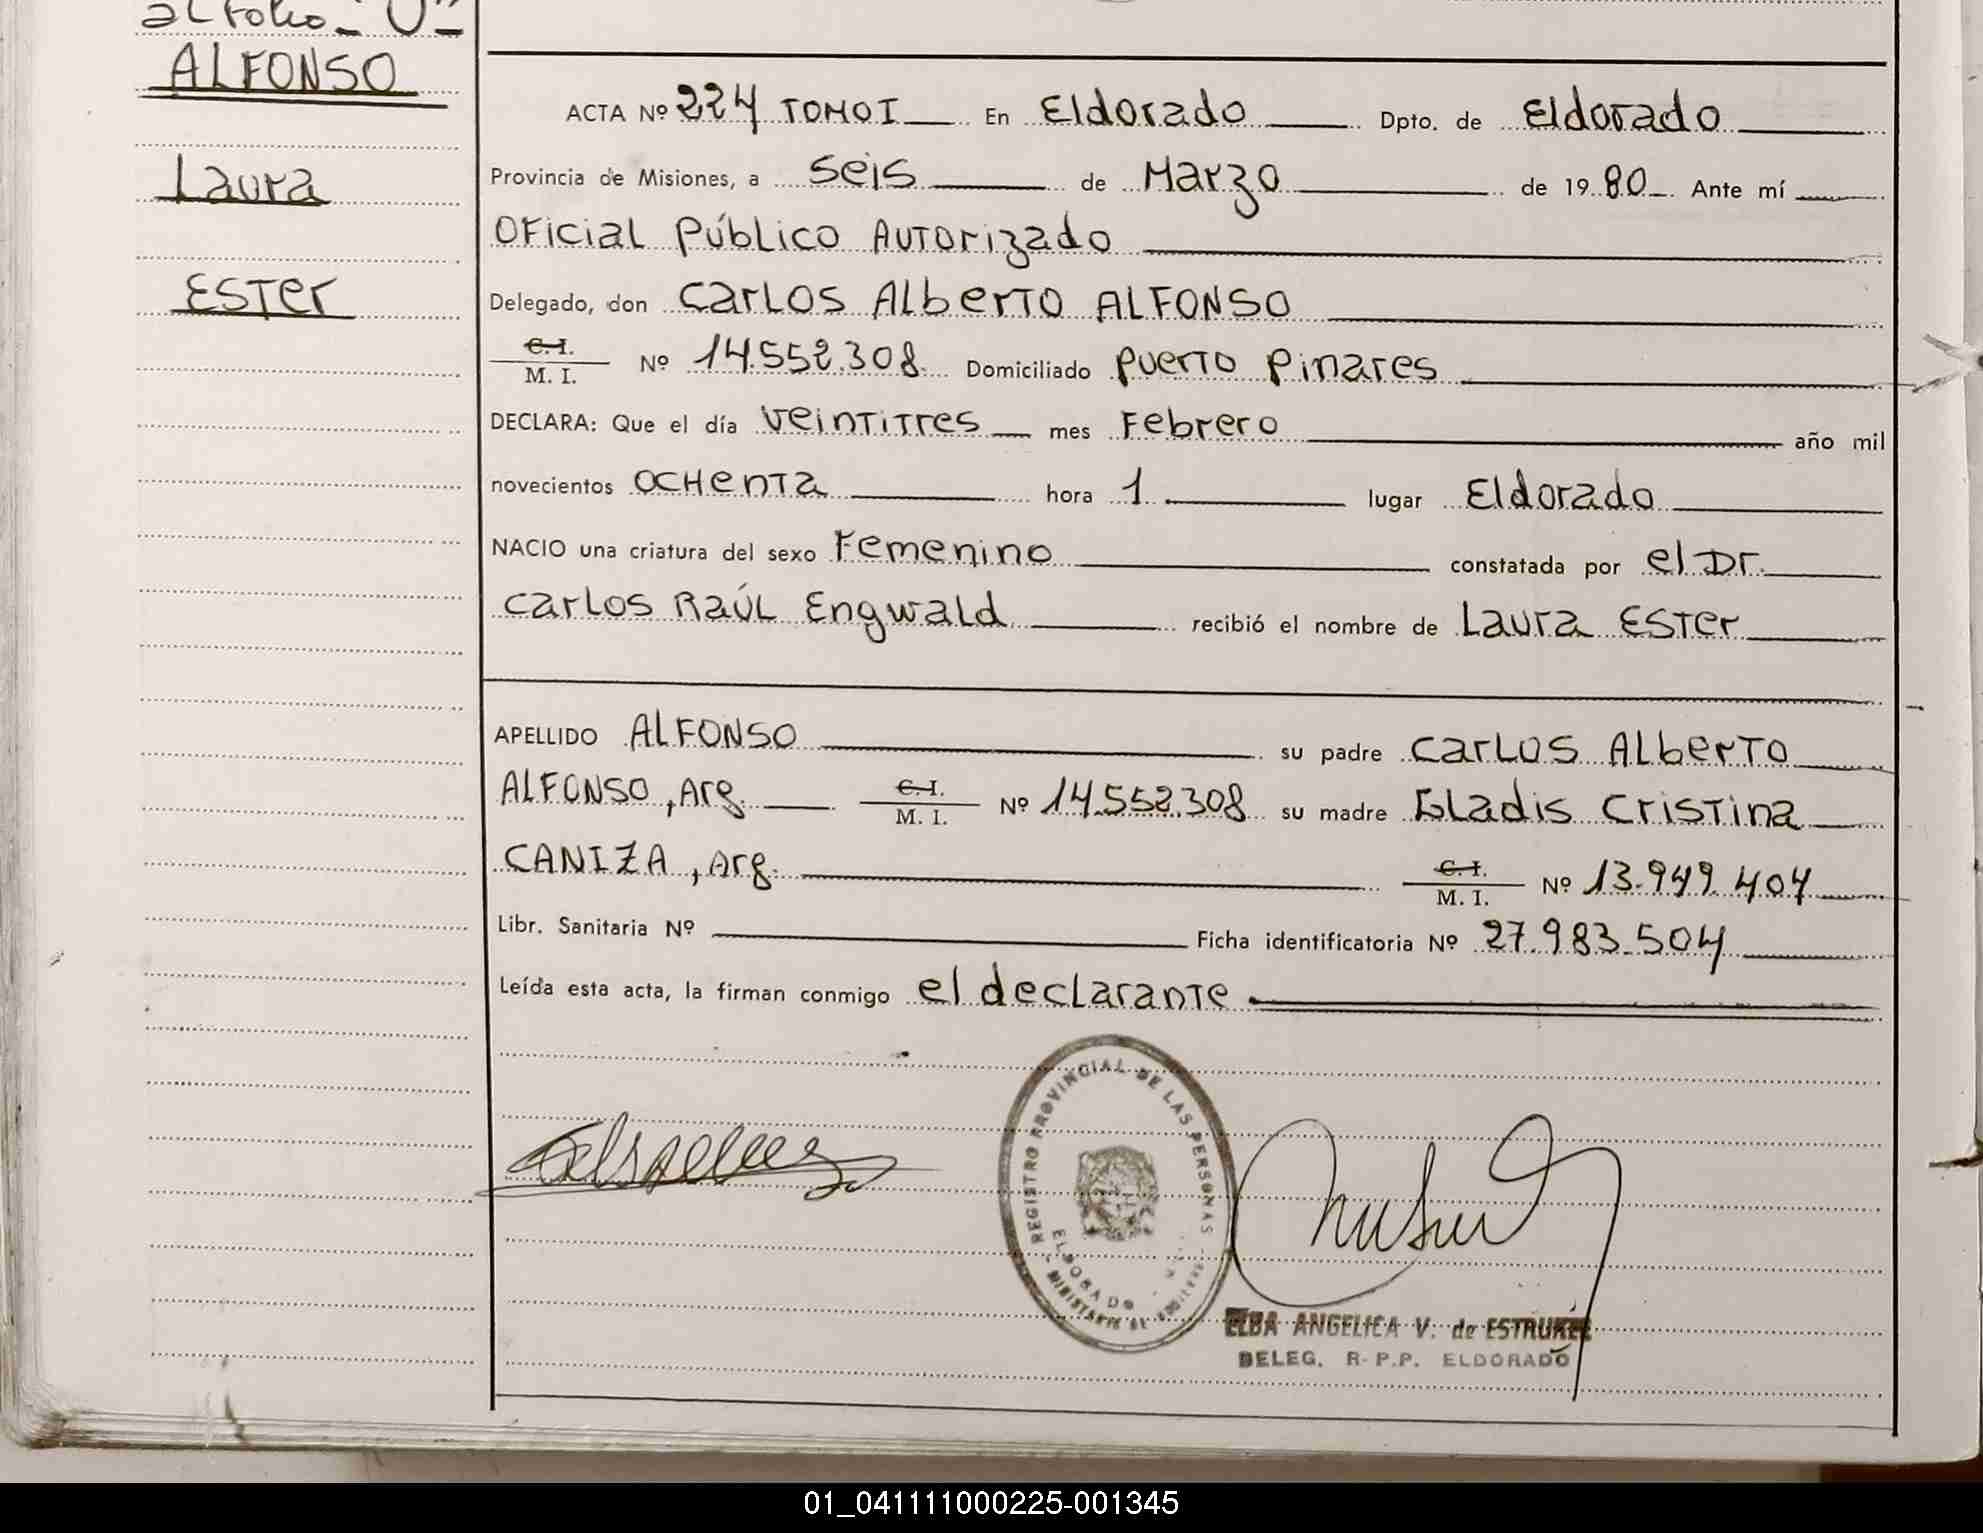 al folio
ALFONSO
Laura
Ester
ACTA Nº 224 TOMO I En Eldorado Dpto. de Eldorado
Provincia de Misiones, a seis de Marzo de 1980 Ante mí
Oficial Público Autorizado
Delegado, don Carlos Alberto ALFONSO
C. I.
M. I. Nº 14.552.308 Domiciliado Puerto Pinares
DECLARA: Que el día veintitres mes Febrero año mil
novecientos ochenta hora 1 lugar Eldorado
NACIO una criatura del sexo Femenino constatada por el Dr.
Carlos Raúl Engwald recibió el nombre de Laura Ester
APELLIDO ALFONSO su padre Carlos Alberto
ALFONSO, Arg. C. I. M. I. Nº 14.552.308 su madre Gladis Cristina
CANIZA, Arg. C. I. M. I. Nº 13.949.404
Libr. Sanitaria Nº Ficha identificatoria Nº 27.983.504
Leída esta acta, la firman conmigo el declarante
REGISTRO PROVINCIAL DE LAS PERSONAS
ELDORADO
MINISTERIO DE GOBIERNO
ELBA ANGELICA V. de ESTRUKEL
DELEG. R.P.P. ELDORADO
01_041111000225-001345